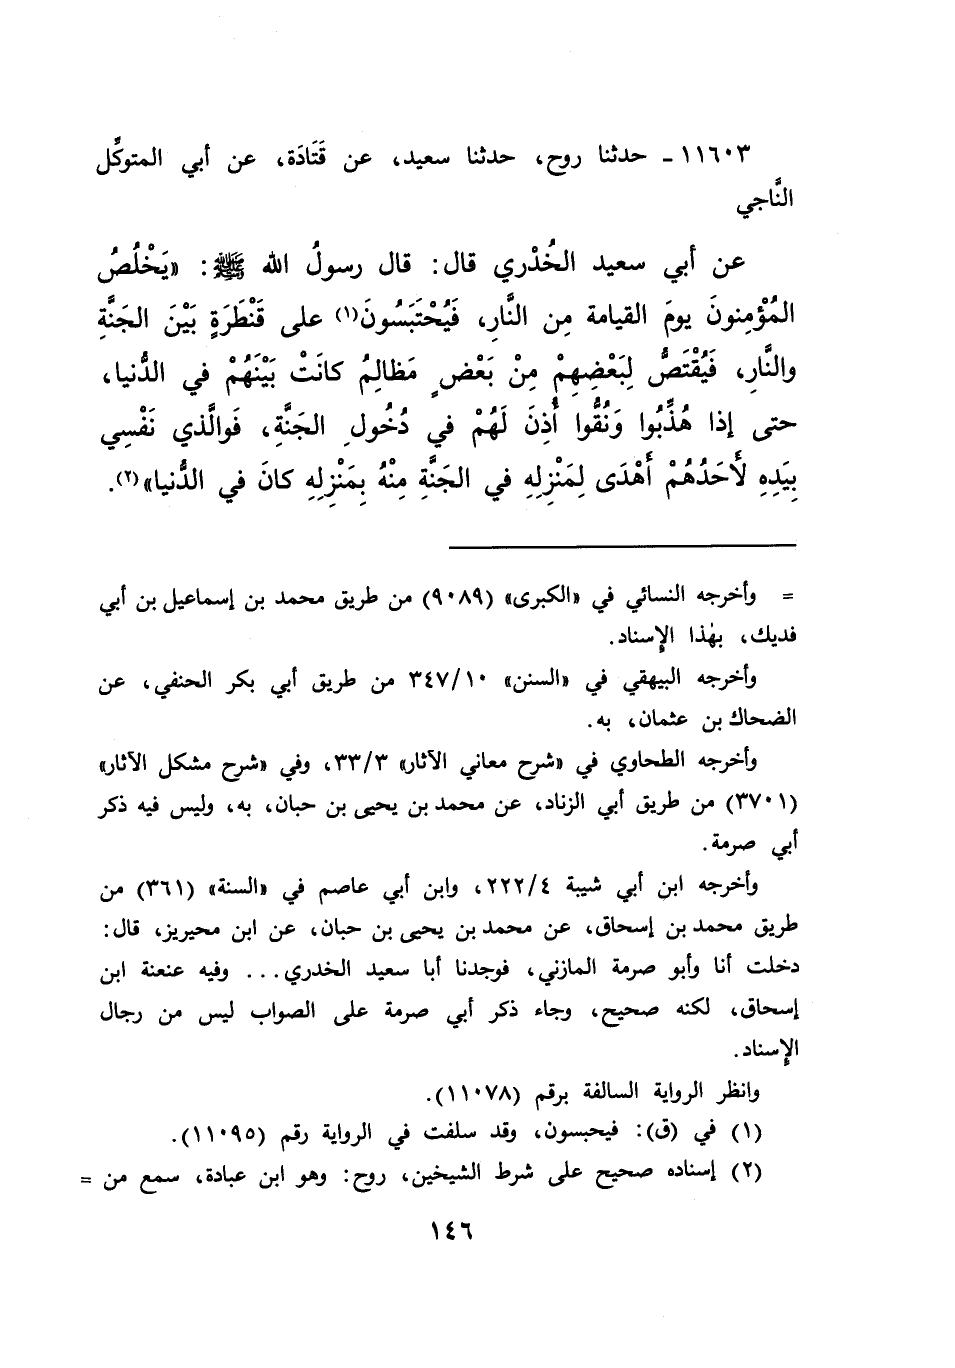 ١١٦٠٣ - حدثنا روح، حدثنا سعيد، عن قَتَادَة، عن أبي المتوكِّل
النَّاجي
عن أبي سعيد الخُدْري قال: قال رسولُ الله ﷺ: «يَخْلُصُ
المُؤْمِنونَ يومَ القيامة مِن النَّارِ، فَيُحْتَبَسُونَ(١) على قَنْطَرَةٍ بَيْنَ الجَنَّةِ
والنَّارِ، فَيُقْتَصُّ لِبَعْضِهِمْ مِنْ بَعْضٍ مَظالِمُ كانَتْ بَيْنَهُمْ في الدُّنيا،
حتى إذا هُذِّبُوا وَنُقُّوا أُذِنَ لَهُمْ في دُخُولِ الجَنَّةِ، فَوالَّذي نَفْسِي
بِيَدِهِ لأَحَدُهُمْ أَهْدَى لِمَنْزِلِهِ في الجَنَّةِ مِنْهُ بِمَنْزِلِهِ كانَ في الدُّنيا»(٢).
= وأخرجه النسائي في «الكبرى» (٩٠٨٩) من طريق محمد بن إسماعيل بن أبي
فديك، بهٰذا الإسناد.
وأخرجه البيهقي في «السنن» ٣٤٧/١٠ من طريق أبي بكر الحنفي، عن
الضحاك بن عثمان، به.
وأخرجه الطحاوي في «شرح معاني الآثار» ٣٣/٣، وفي «شرح مشكل الآثار»
(٣٧٠١) من طريق أبي الزناد، عن محمد بن يحيى بن حبان، به، وليس فيه ذكر
أبي صرمة.
وأخرجه ابن أبي شيبة ٢٢٢/٤، وابن أبي عاصم في «السنة» (٣٦١) من
طريق محمد بن إسحاق، عن محمد بن يحيى بن حبان، عن ابن محيريز، قال:
دخلت أنا وأبو صرمة المازني، فوجدنا أبا سعيد الخدري... وفيه عنعنة ابن
إسحاق، لكنه صحيح، وجاء ذكر أبي صرمة على الصواب ليس من رجال
الإسناد.
وانظر الرواية السالفة برقم (١١٠٧٨).
(١) في (ق): فيحبسون، وقد سلفت في الرواية رقم (١١٠٩٥).
(٢) إسناده صحيح على شرط الشيخين، روح: وهو ابن عبادة، سمع من =
١٤٦